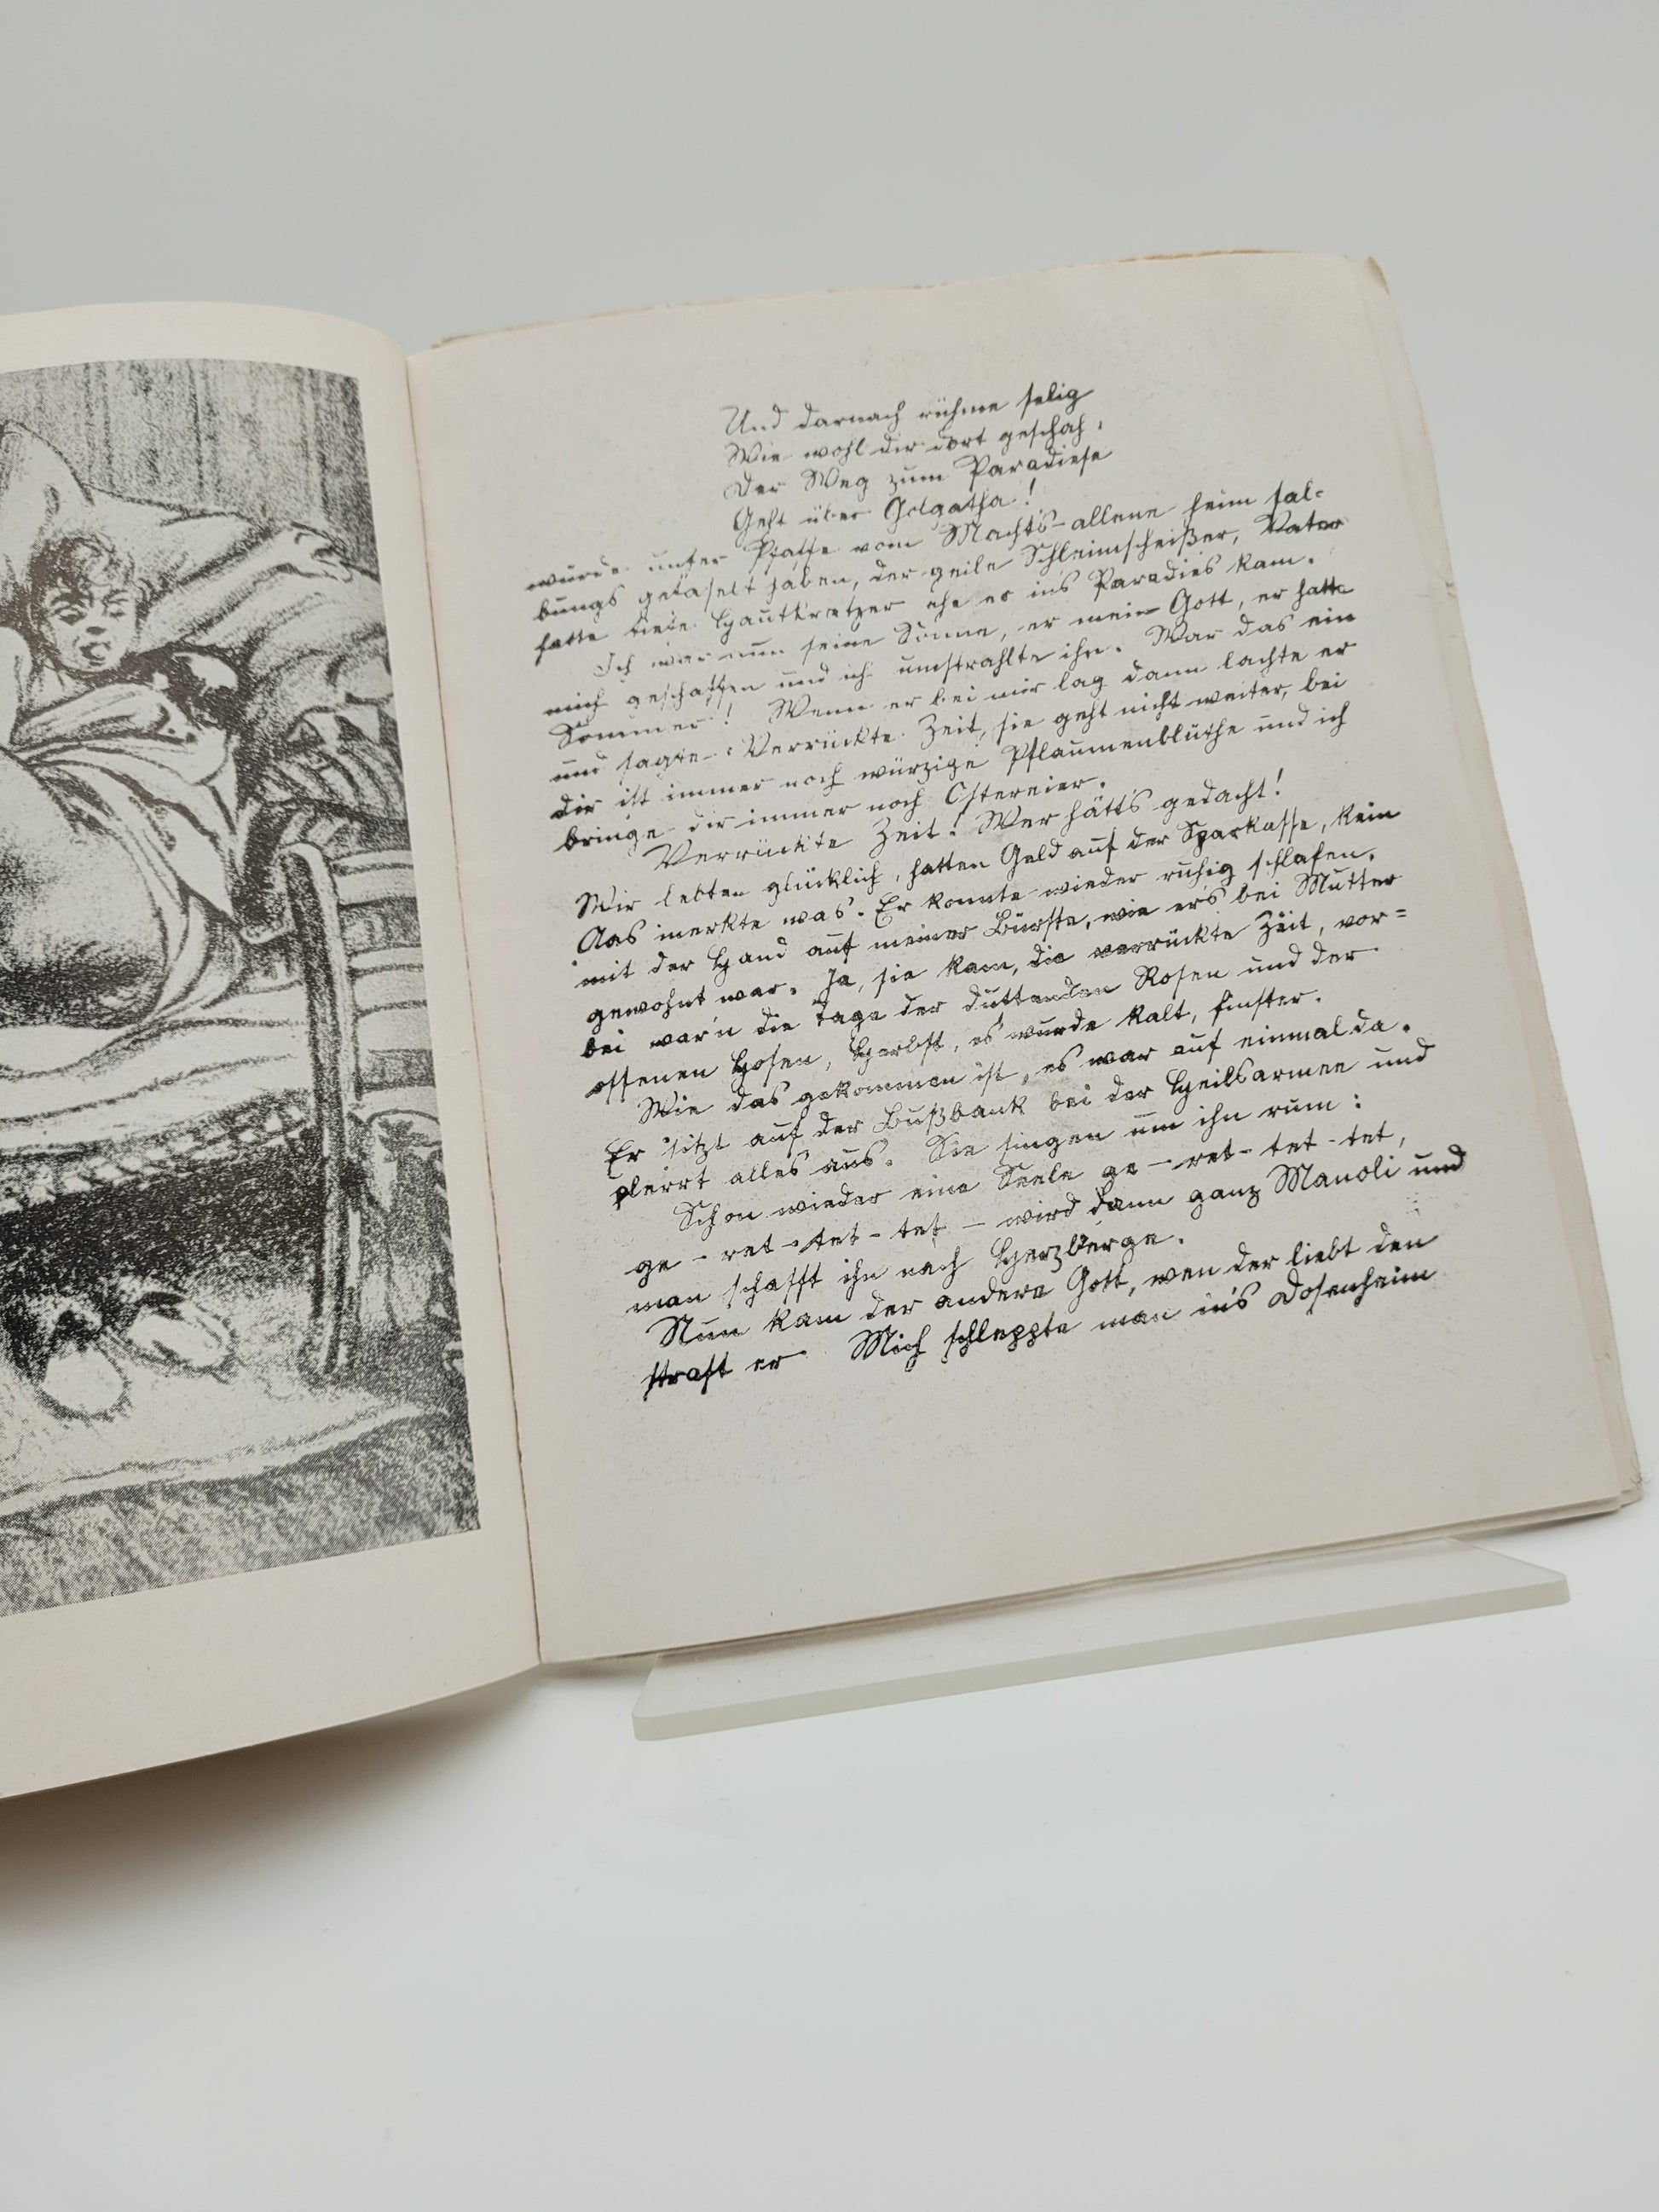 Und darnach rühme selig
Wie wohl dir dort geschah,
Der Weg zum Paradiese
Geht über Golgatha!
würde unser Pfaffe vom Machts-alleene heim sal-
bungs gefaselt haben, der geile Schleimscheißer, Vater
hatte viele Hautkratzer ehe er ins Paradies kam.
Ich war nun seine Sonne, er mein Gott, er hatte
mich geschaffen und ich umstrahlte ihn. War das ein
Sommer! Wenn er bei mir lag dann lachte er
und sagte: Verrückte Zeit, sie geht nicht weiter, bei
dir ist immer noch würzige Pflaumenblüthe und ich
bringe dir immer noch Ostereier.
Verrückte Zeit! Wer hätts gedacht!
Wir lebten glücklich, hatten Geld auf der Sparkasse, kein
Aas merkte was. Er konnte wieder ruhig schlafen,
mit der Hand auf meiner Bürste, wie ers bei Mutter
gewohnt war. Ja, sie kam, die verrückte Zeit, vor=
bei war'n die Tage der duftenden Rosen und der
offenen Hosen, Herbst, es wurde kalt, finster.
Wie das gekommen ist, es war auf einmal da.
Er sitzt auf der Bußbank bei der Heilsarmee und
plerrt alles aus. Sie singen um ihn rum:
Schon wieder eine Seele ge-ret-tet-tet,
ge-ret-tet-tet - wird dann ganz Manoli und
man schafft ihn nach Herzberge.
Nun kam der andere Gott, wen der liebt den
straft er Mich schleppte man in's Dosenheim